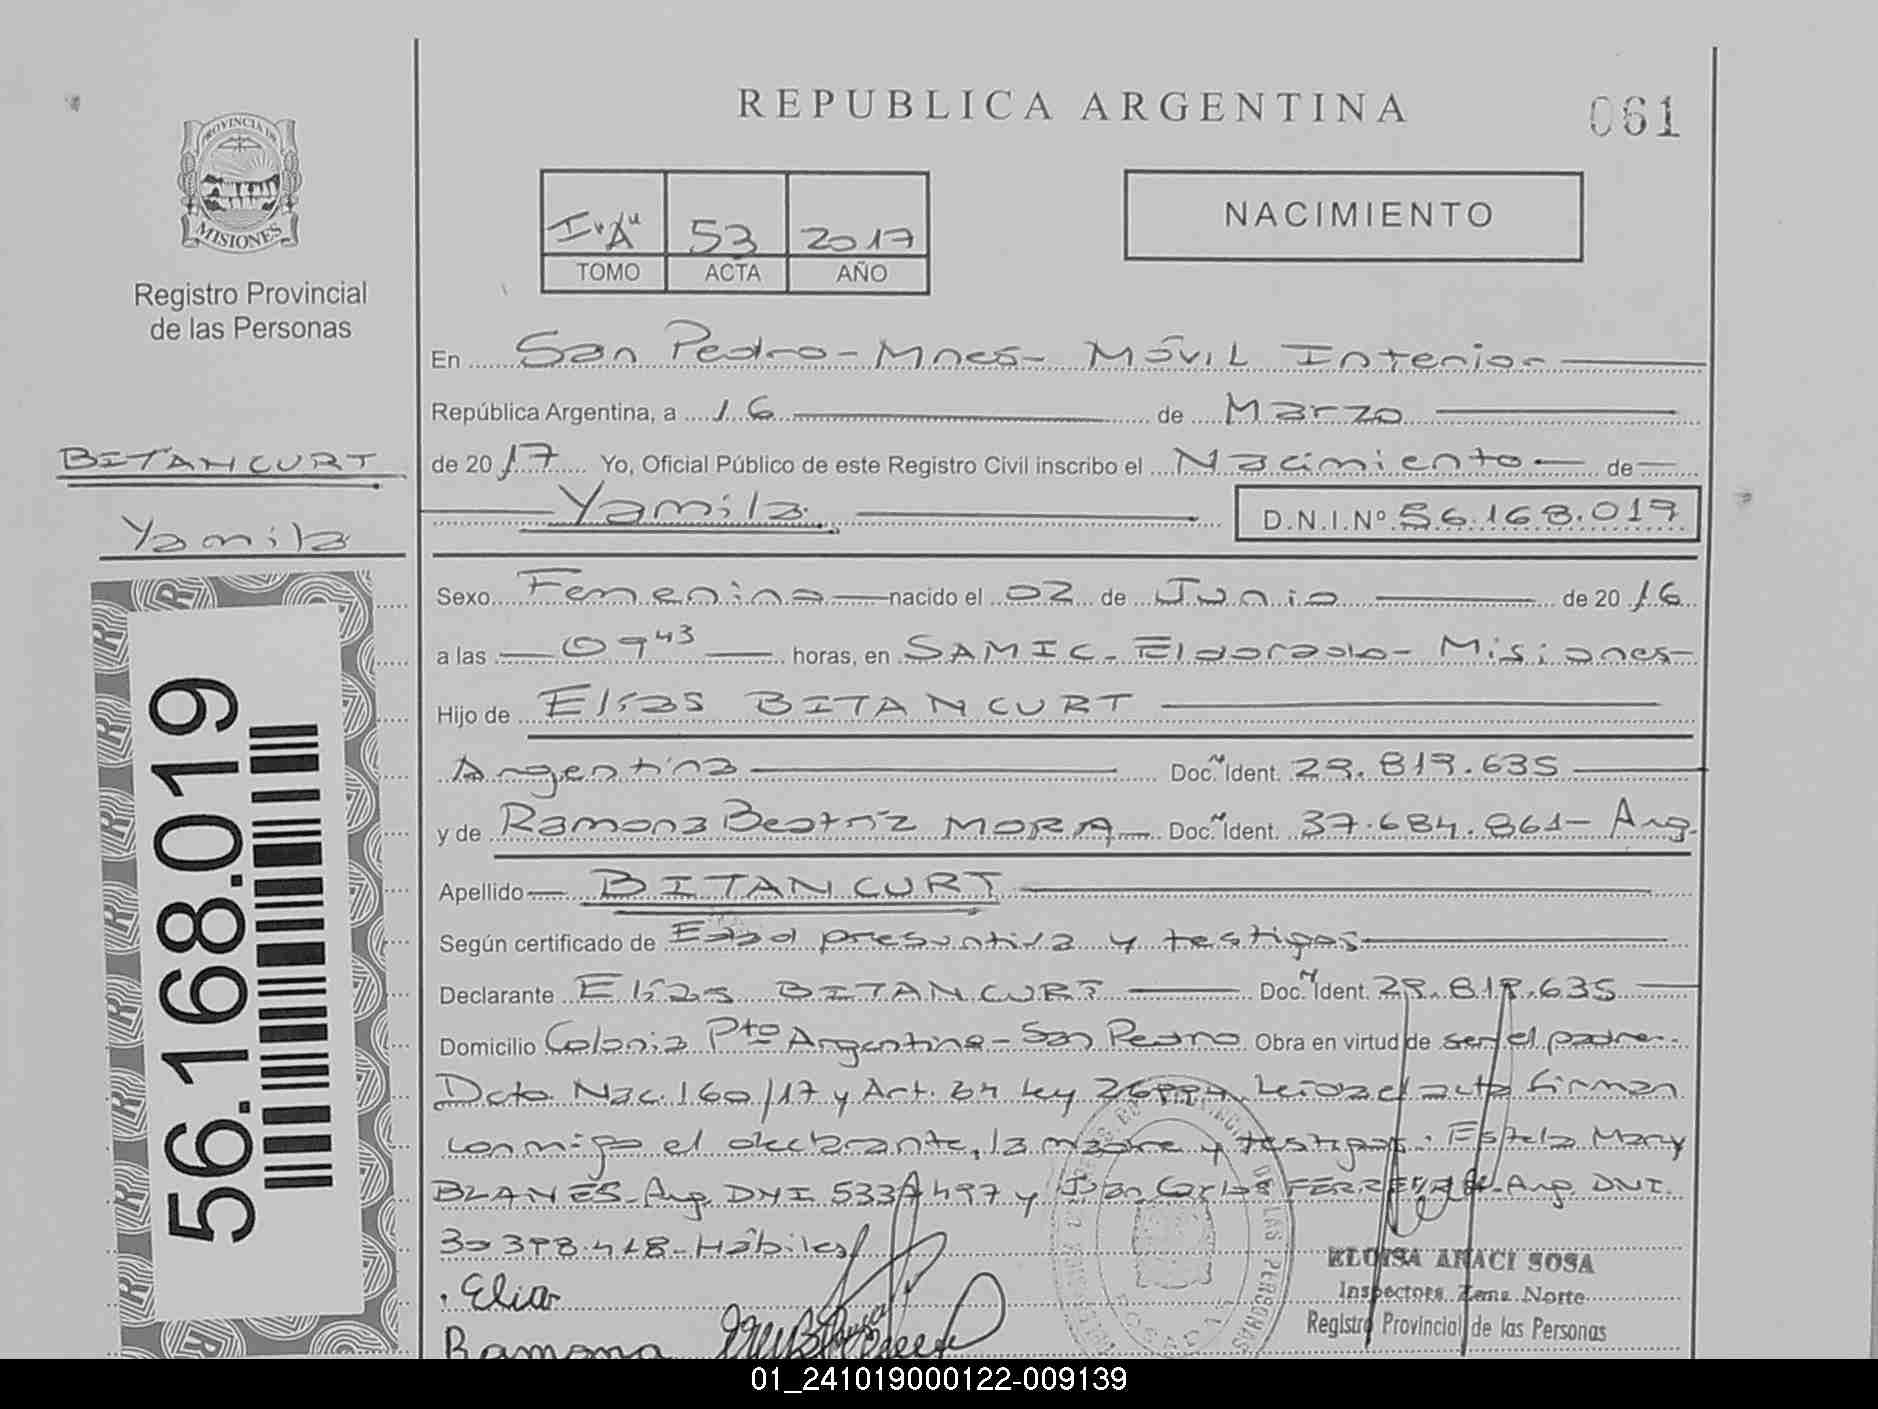 REPUBLICA ARGENTINA
061
PROVINCIA DE
MISIONES
Registro Provincial
de las Personas
I "A" 53 2017
TOMO ACTA AÑO
NACIMIENTO
En San Pedro - Mnes - MÓVIL Interior
República Argentina, a 16 de Marzo
BITANCURT
de 20 17 Yo, Oficial Público de este Registro Civil inscribo el Nacimiento de
Yamila D.N.I.Nº 56.168.019
Yamila
Sexo Femenina nacido el 02 de Junio de 20 16
a las 09 43 horas, en SAMIC - Eldorado - Misiones -
Hijo de Elías BITANCURT
Argentina Doc. N Ident. 29.819.635
y de Ramona Beatríz MORA Doc. N Ident. 37.684.861 - Arg.
Apellido BITANCURT
Según certificado de Edad presuntiva y testigos
Declarante Elías BITANCURT Doc. N Ident. 29.819.635
Domicilio Colonia Pto Argentino - San Pedro Obra en virtud de ser el padre.
Dcto. Nac. 160/17 y Art. Ley Leída el acta firman
conmigo el declarante, la madre y testigos: Estela Mary
BLANES - Arg. DNI y Juan Carlos - Arg. DNI.
- Hábiles
56.168.019
ELOISA ARACI SOSA
Inspectora Zona Norte
Registro Provincial de las Personas
Elia
Ramona
01_241019000122-009139